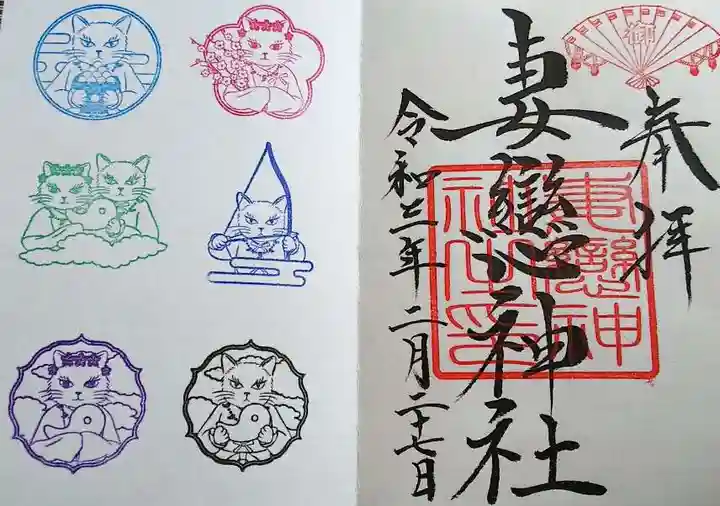 御
奉拝
妻戀神社
妻戀神社之印
令和三年二月二十七日